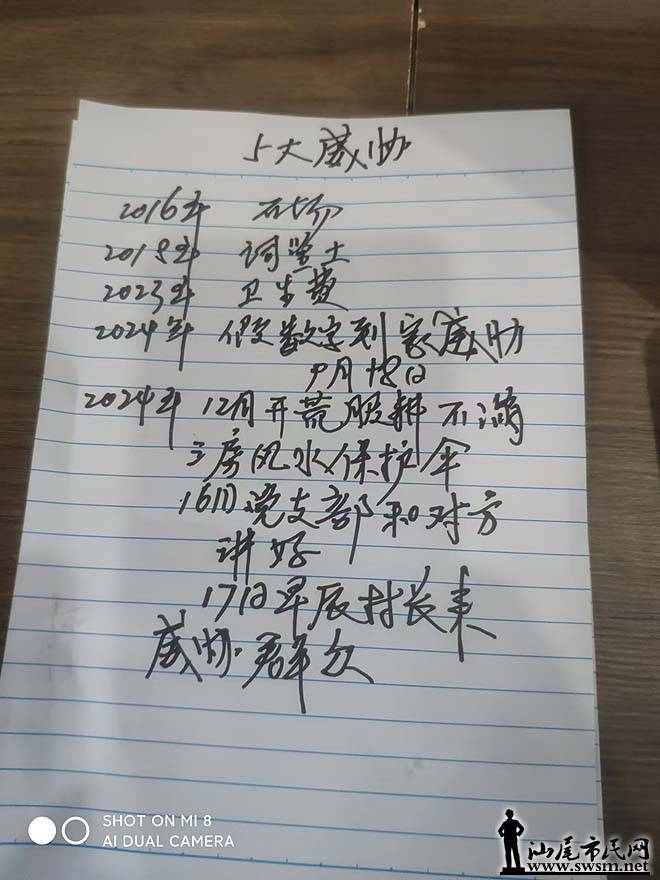 5大威胁
2016年 石场
2018年
2023年 卫生费
2024年 假数字到家威胁
9月18日
2024年12月开荒 不满
三房风水保护伞
16日党支部和对方
讲好
17日早辰村长来
威胁.群众
SHOT ON MI 8
AI DUAL CAMERA
汕尾市民网
www.swsm.net